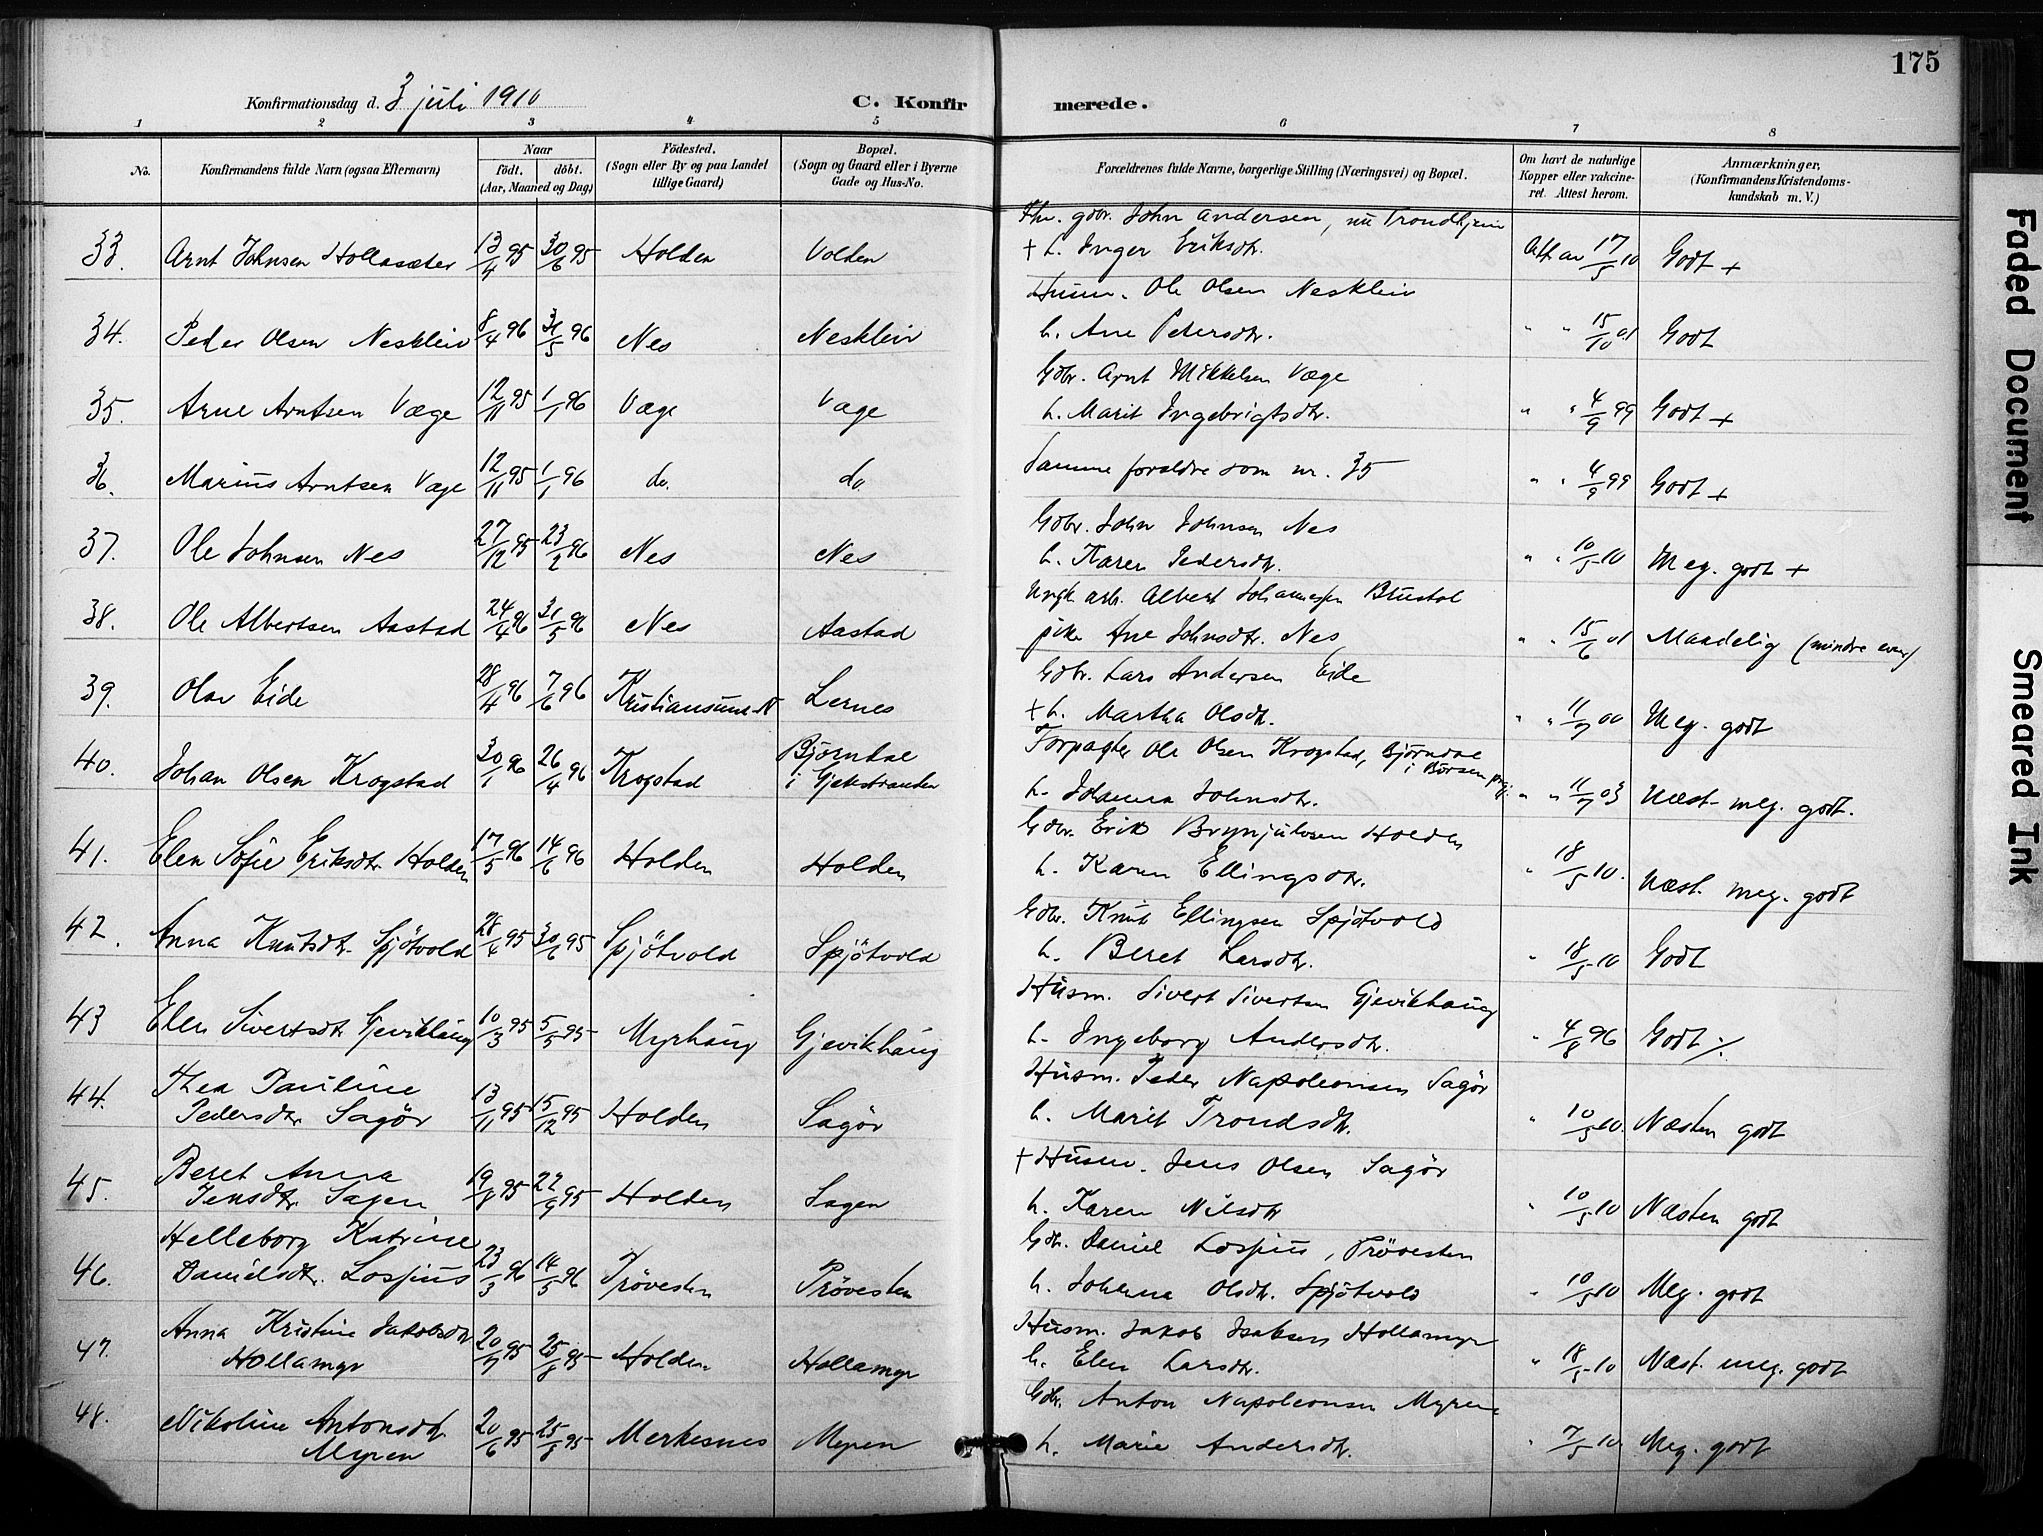 175
Konfirmationsdag d. 3 juli 1910 C. Konfirmerede.
1 2 3 4 5 6 7 8
No. Konfirmandens fulde Navn (ogsaa Efternavn) Naar födt. döbt. (Aar, Maaned og Dag) Födested. (Sogn eller By og paa Landet tillige Gaard) Bopæl. (Sogn og Gaard eller i Byerne Gade og Hus-No. Forældrenes fulde Navne, borgerlige Stilling (Næringsvei) og Bopæl. Om havt de naturlige Kopper eller vakcineret. Attest herom. Anmærkninger. (Konfirmandens Kristendomskundskab m. V.)
Fhv. gdbr. John Andersen, nu Trondhjem
33. Arnt Johnsen Hollasæter 13/4 95 30/6 95 Holden Volden + h. Inger Eriksdtr. Att. av 17/5 10 Godt +
Husm. Ole Olsen Nesklein
34. Peder Olsen Nesklein 8/4 96 31/5 96 Nes Nesklein h. Ane Petersdtr. " " 15/10 01 Godt
Gdbr. Arnt Mikkelsen Væge
35. Arne Arntsen Væge 12/11 95 1/1 96 Væge Væge h. Marit Ingebrigtsdtr. " " 4/9 99 Godt +
36. Marius Arntsen Væge 12/11 95 1/1 96 do. do. Samme forældre som nr. 35 " " 4/9 99 Godt +
Gdbr. John Johnsen Nes
37. Ole Johnsen Nes 27/12 95 23/2 96 Nes Nes h. Karen Pedersdtr. " " 10/5 10 Meg. godt +
Ungk. arb. Albert Johannessen Brustol
38. Ole Albertsen Aastad 24/4 96 31/5 96 Nes Aastad pike Ane Johnsdtr. Nes " " 15/6 01 Maadelig (mindre evner)
Gdbr. Lars Andersen Eide
39. Olav Eide 28/4 96 7/6 96 Kristiansund N Lernes + h. Martha Olsdtr. " " 11/7 00 Meg. godt
Forpagter Ole Olsen Krogstad, Bjørndal
i Børsen prgj.
40. Johan Olsen Krogstad 30/1 96 26/4 96 Krogstad Bjørndal i Gjelstranden h. Johanna Johnsdtr. " " 11/7 03 Næst. meg. godt.
Gdbr. Erik Brynjulvsen Holden
41. Elen Sofie Eriksdtr. Holden 17/5 96 14/6 96 Holden Holden h. Karen Ellingsdtr. " 18/5 10. Næst. meg. godt
Gdbr. Knut Ellingsen Spjötvold
42. Anna Knutsdtr. Spjötvold 28/4 95 30/6 95 Spjötvold Spjötvold h. Beret Larsdtr. " 18/5 10 Godt
Husm. Sivert Sivertsen Gjevikhaug
43 Elen Sivertsdtr. Gjevikhaug 10/3 95 5/5 95 Myrhaug Gjevikhaug h. Ingeborg Andersdtr. " 4/8 96 Godt ⁒
Husm. Peder Napoleonsen Sagör
44. Thea Pauline Pedersdtr. Sagör 13/11 95 15/12 95 Holden Sagör h. Marit Trondsdtr. " 10/5 10. Næsten godt
+ Husm. Jens Olsen Sagör
45. Beret Anna Jensdtr. Sagen 19/8 95 22/9 95 Holden Sagen h. Karen Nilsdtr " 10/5 10 Næsten godt
Gdbr. Daniel Lossius, Prövesten
46. Helleborg Katrine Danielsdtr. Lossius 23/3 96 14/5 96 Prövesten Prövesten h. Johanna Olsdtr. Spjötvold " 10/5 10 Meg. godt
Husm. Jakob Isaksen Hollamyr
47. Anna Kristine Jakobsdtr Hollamyr 20/7 95 25/8 95 Holden Hollamyr h. Elen Larsdtr. " 18/5 10 Næst. meg. godt
Gdbr. Anton Napoleonsen Myren
48. Nikoline Antonsdtr. Myren 20/6 95 25/8 95 Merkesnes Myren h. Marie Andersdtr. " 7/5 10 Meg. godt
Faded Document
Smeared Ink